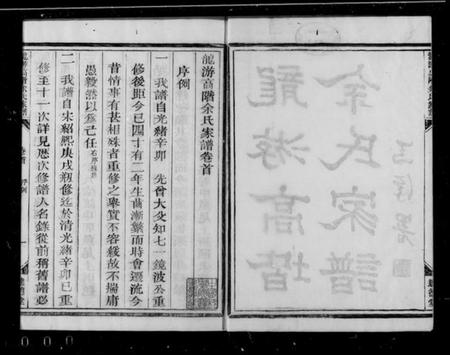 龍游高階余氏家譜卷首
序例
一 我譜自光緒辛卯 先曾大父知七一鏡波公重
修後距今已四十有二年生齒漸繁而時會遷流今
昔情事有甚相殊者重修之舉實不容緩故不揣庸
愚毅然以爲己任
二 我譜自宋紹熙庚戌初修迄於清光緒辛卯已重
修至十一次詳見歷次修譜人名錄從前稱舊譜必
卷首 序例 一
余氏家譜
龍游高階